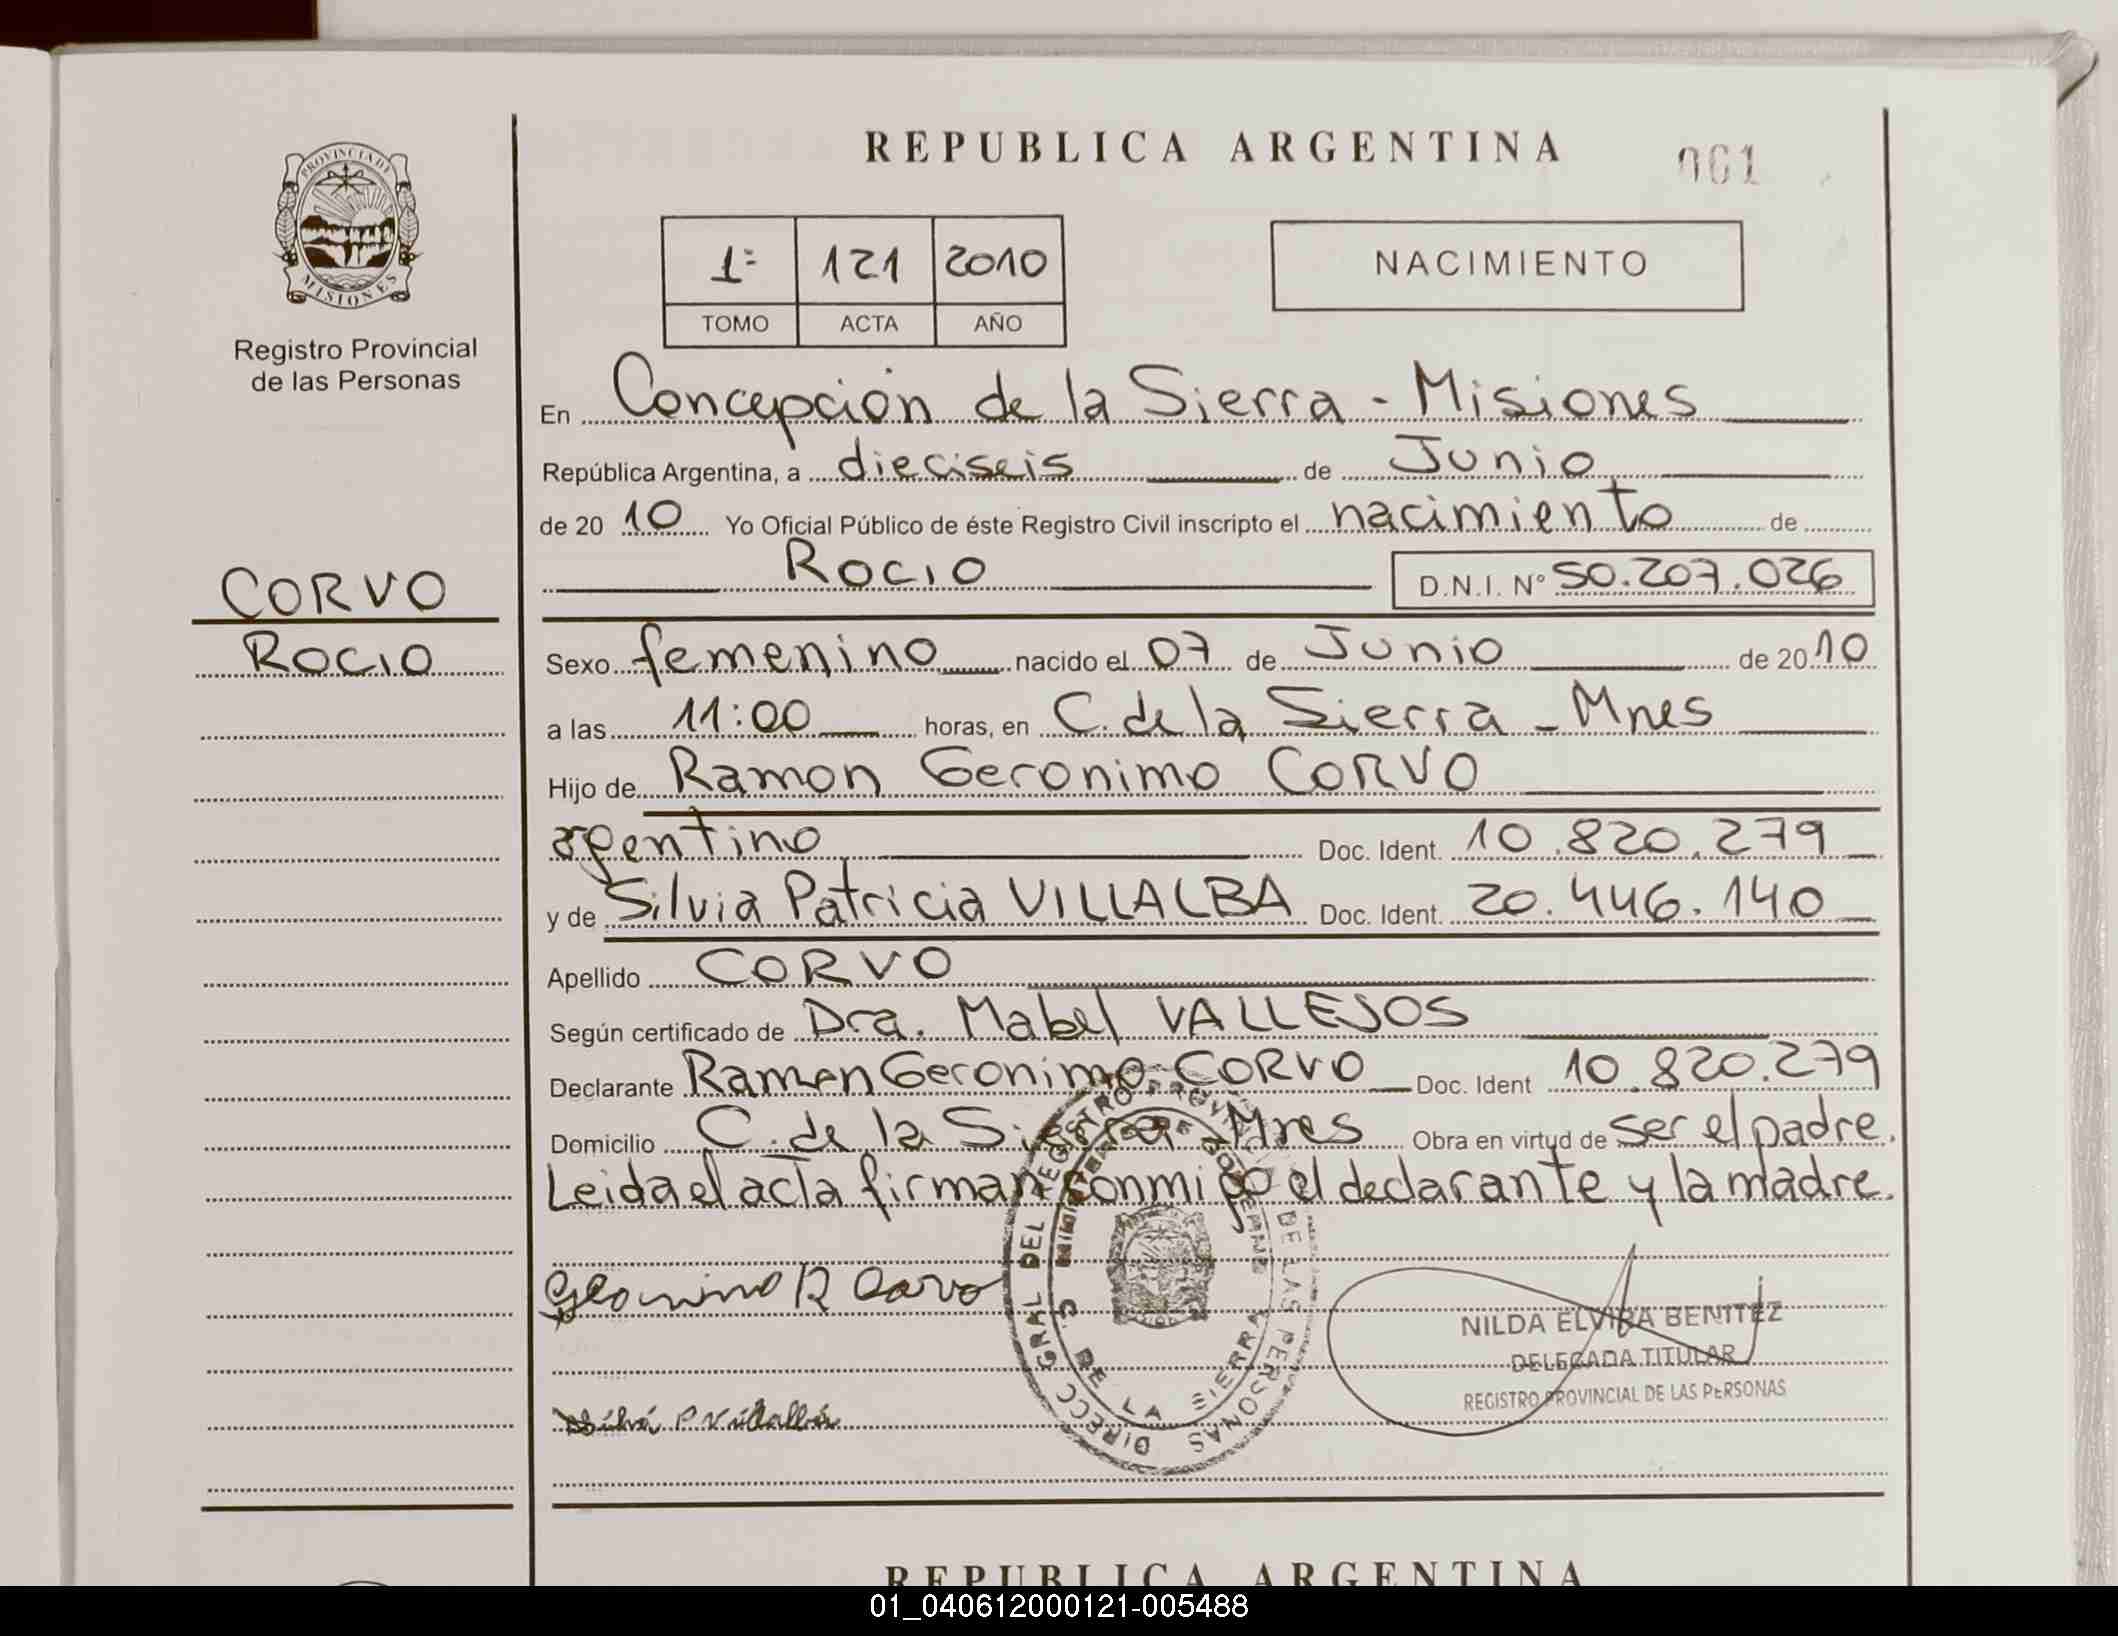 REPUBLICA ARGENTINA
061
PROVINCIA DE
MISIONES
Registro Provincial
de las Personas
1º 121 2010
TOMO ACTA AÑO
NACIMIENTO
En Concepción de la Sierra - Misiones
República Argentina, a dieciseis de Junio
de 20 10 Yo Oficial Público de éste Registro Civil inscripto el nacimiento de
Rocio D.N.I. Nº 50.207.026
CORVO
ROCIO
Sexo femenino nacido el 07 de Junio de 20 10
a las 11:00 horas, en C. de la Sierra - Mnes
Hijo de Ramon Geronimo CORVO
argentino Doc. Ident. 10.820.279
y de Silvia Patricia VILLALBA Doc. Ident. 20.446.140
Apellido CORVO
Según certificado de Dra. Mabel VALLEJOS
Declarante Ramon Geronimo CORVO Doc. Ident 10.820.279
Domicilio C. de la Sierra - Mnes Obra en virtud de ser el padre.
Leida el acta firman conmigo el declarante y la madre.
Geronimo R Corvo
Silvia P Villalba
DIRECC GRAL DEL REGISTRO PROVINCIAL DE LAS PERSONAS
C. DE LA SIERRA
NILDA ELVIRA BENITEZ
DELEGADA TITULAR
REGISTRO PROVINCIAL DE LAS PERSONAS
REPUBLICA ARGENTINA
01_040612000121-005488